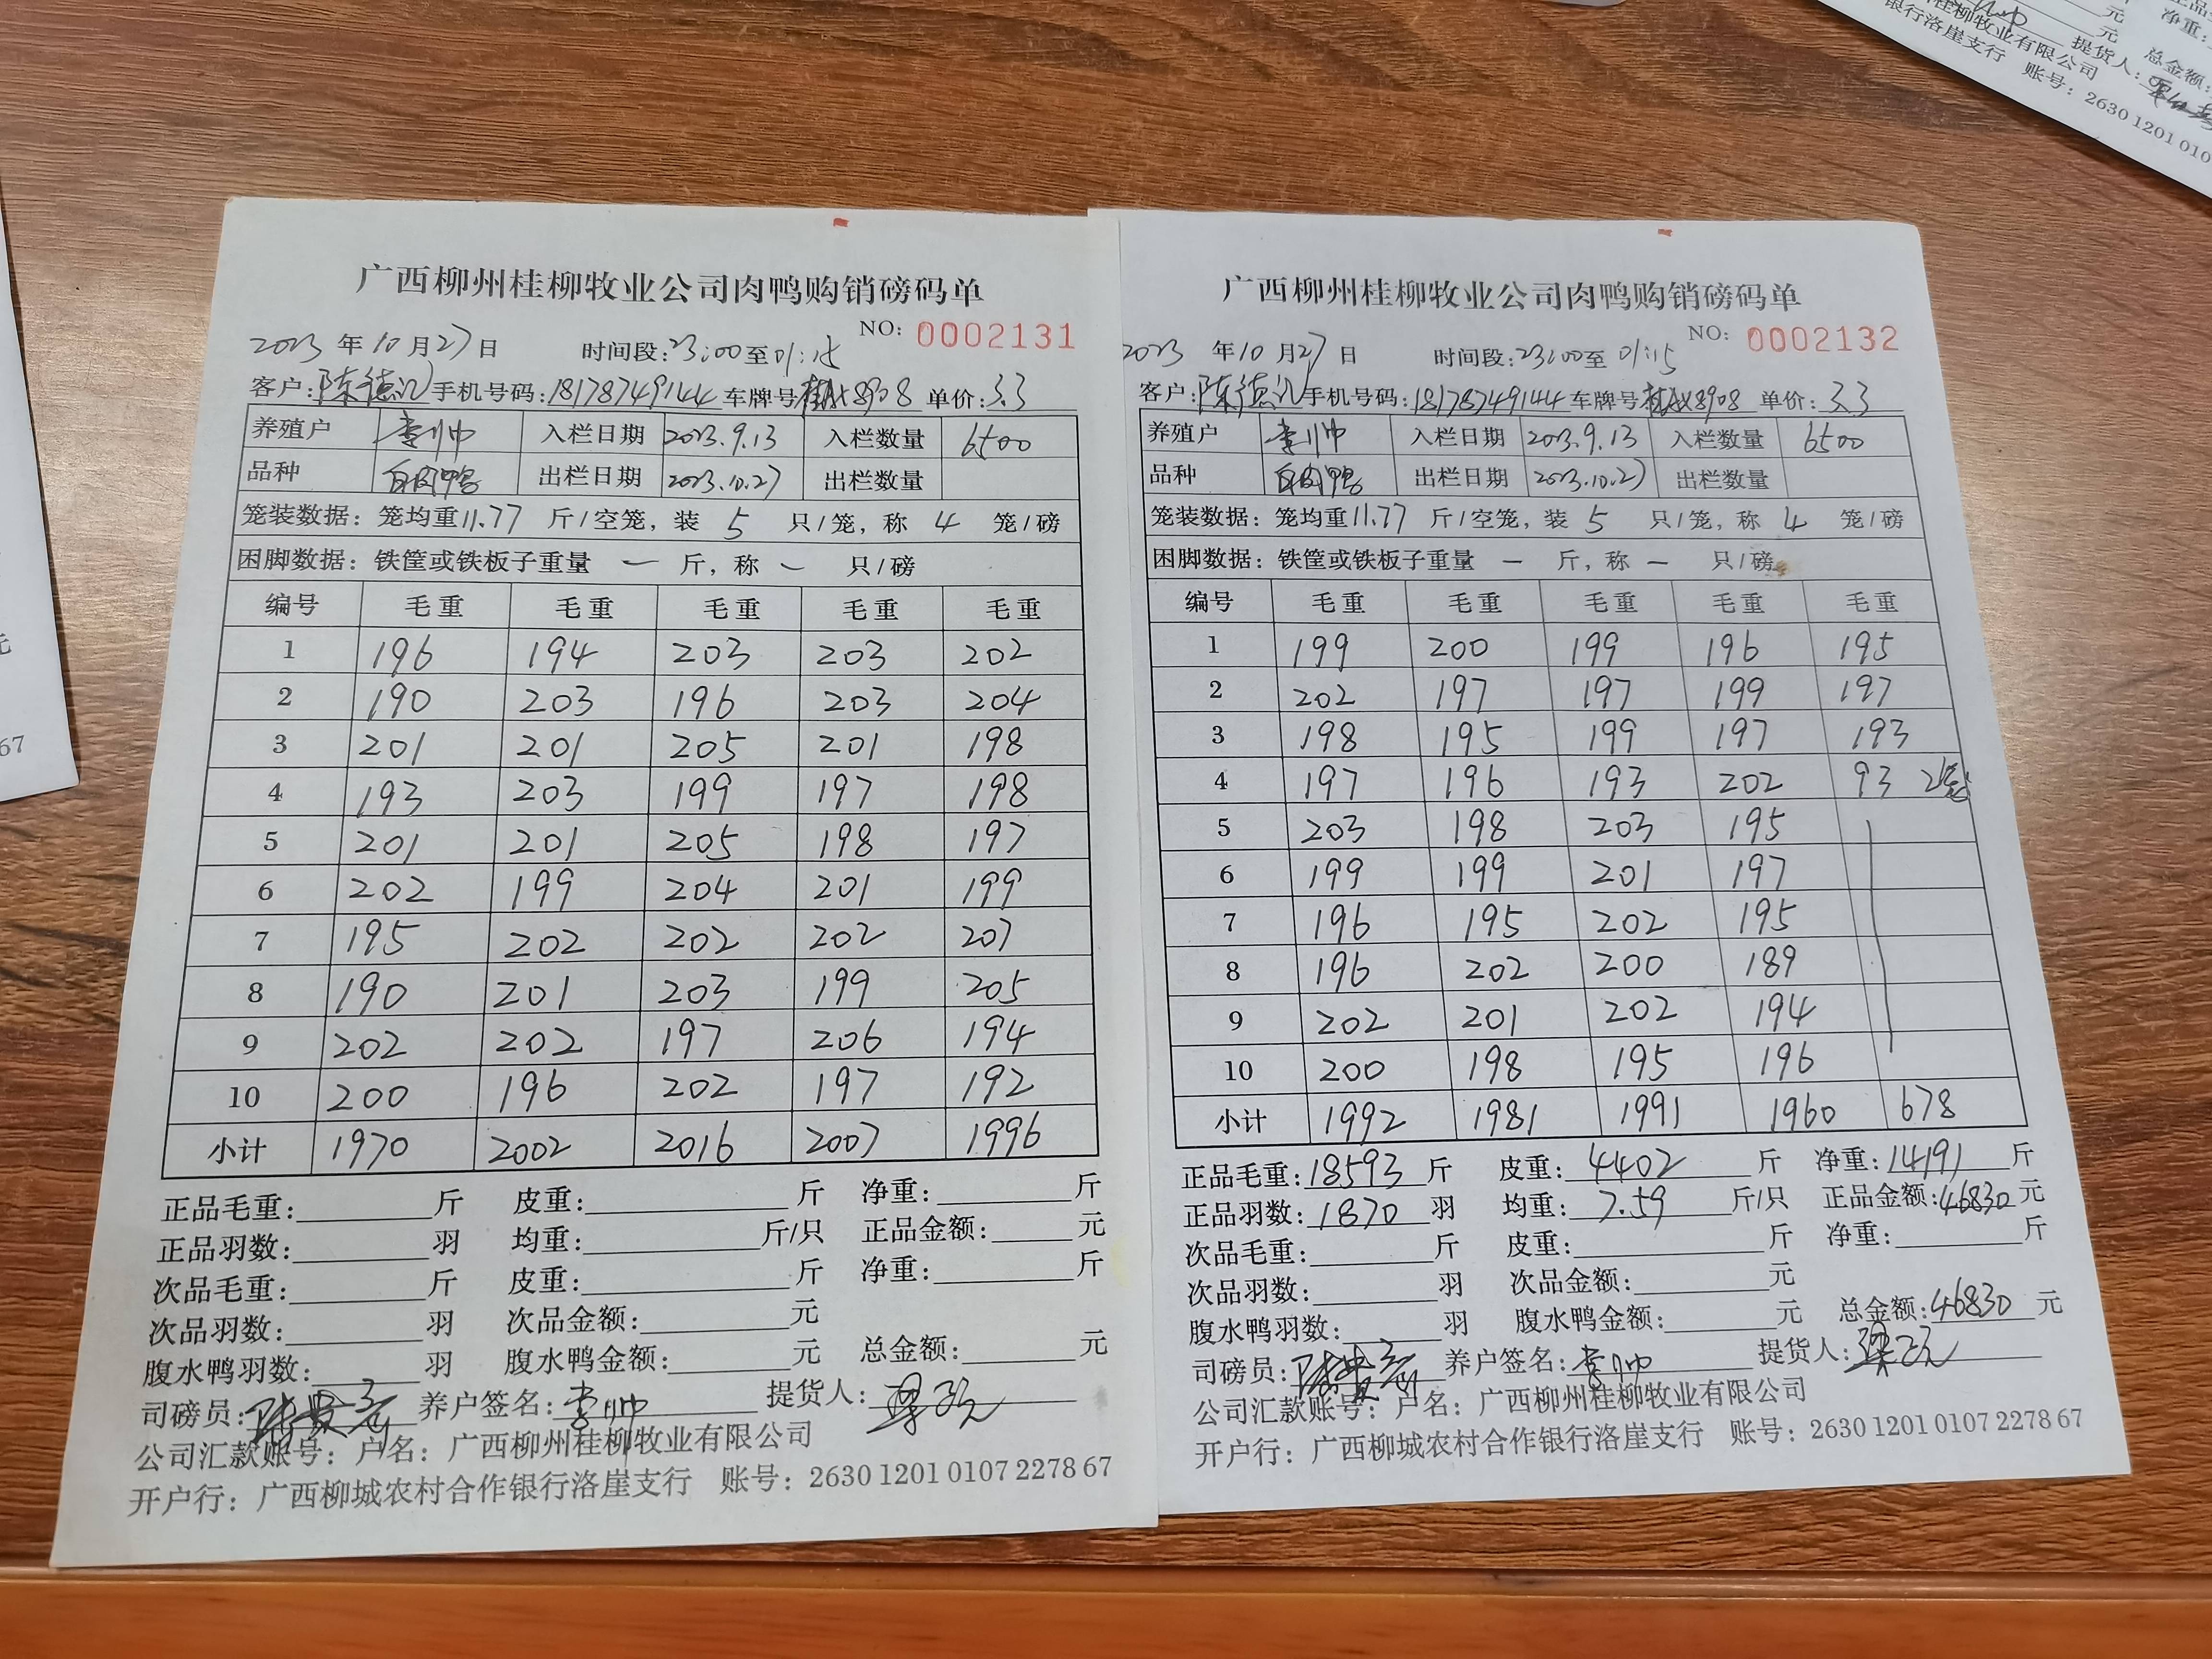 广西柳州桂柳牧业公司肉鸭购销磅码单
NO: 0002131
2023 年 10 月 27 日 时间段: 23:00 至 01:15
客户: 陈德 手机号码: 18178749144 车牌号 8908 单价: 3.3
养殖户 李帅 入栏日期 2023.9.13 入栏数量 6500
品种 白肉鸭 出栏日期 2023.10.27 出栏数量
笼装数据: 笼均重 11.77 斤/空笼, 装 5 只/笼, 称 4 笼/磅
困脚数据: 铁筐或铁板子重量 — 斤, 称 — 只/磅
编号 毛重 毛重 毛重 毛重 毛重
1 196 194 203 203 202
2 190 203 196 203 204
3 201 201 205 201 198
4 193 203 199 197 198
5 201 201 205 198 197
6 202 199 204 201 199
7 195 202 202 202 207
8 190 201 203 199 205
9 202 202 197 206 194
10 200 196 202 197 192
小计 1970 2002 2016 2007 1996
正品毛重: 斤 皮重: 斤 净重: 斤
正品羽数: 羽 均重: 斤/只 正品金额: 元
次品毛重: 斤 皮重: 斤 净重: 斤
次品羽数: 羽 次品金额: 元
腹水鸭羽数: 羽 腹水鸭金额: 元 总金额: 元
司磅员: 养户签名: 李帅 提货人:
公司汇款账号: 户名: 广西柳州桂柳牧业有限公司
开户行: 广西柳城农村合作银行洛崖支行 账号: 2630 1201 0107 2278 67
广西柳州桂柳牧业公司肉鸭购销磅码单
NO: 0002132
2023 年 10 月 27 日 时间段: 23:00 至 01:15
客户: 陈德 手机号码: 18178749144 车牌号 8908 单价: 3.3
养殖户 李帅 入栏日期 2023.9.13 入栏数量 6500
品种 白肉鸭 出栏日期 2023.10.27 出栏数量
笼装数据: 笼均重 11.77 斤/空笼, 装 5 只/笼, 称 4 笼/磅
困脚数据: 铁筐或铁板子重量 — 斤, 称 — 只/磅
编号 毛重 毛重 毛重 毛重 毛重
1 199 200 199 196 195
2 202 197 197 199 197
3 198 195 199 197 193
4 197 196 193 202 93 2笼
5 203 198 203 195
6 199 199 201 197
7 196 195 202 195
8 196 202 200 189
9 202 201 202 194
10 200 198 195 196
小计 1992 1981 1991 1960 678
正品毛重: 18593 斤 皮重: 4402 斤 净重: 14191 斤
正品羽数: 1870 羽 均重: 7.59 斤/只 正品金额: 46830 元
次品毛重: 斤 皮重: 斤 净重: 斤
次品羽数: 羽 次品金额: 元
腹水鸭羽数: 羽 腹水鸭金额: 元 总金额: 46830 元
司磅员: 养户签名: 李帅 提货人:
公司汇款账号: 户名: 广西柳州桂柳牧业有限公司
开户行: 广西柳城农村合作银行洛崖支行 账号: 2630 1201 0107 2278 67
元 净重:
元 总金额:
桂柳牧业有限公司 提货人:
银行洛崖支行 账号: 2630 1201 010
元
67